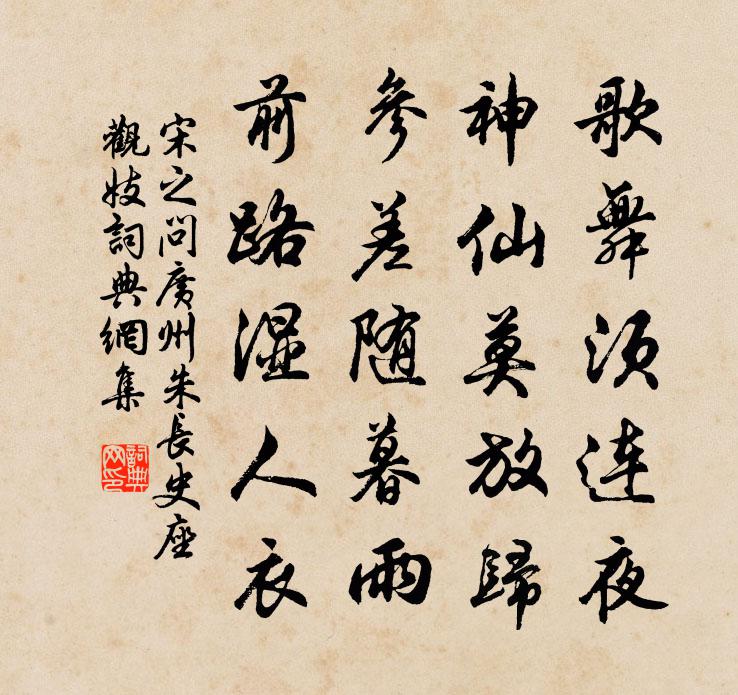 歌舞须连夜
神仙莫放歸
参差随暮雨
前路濕人衣
宋之问廣州朱長史座
觀妓詞典網集
詞典网印